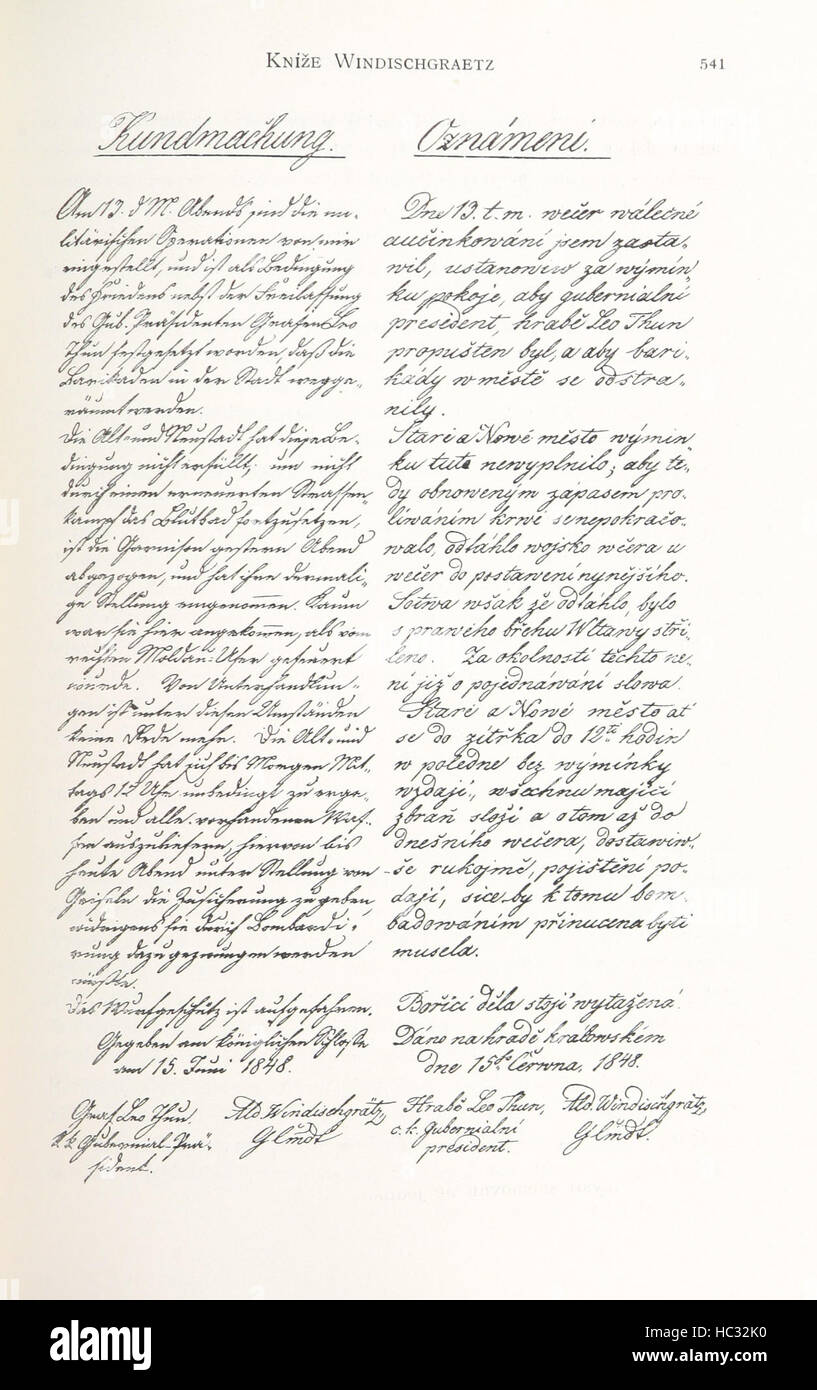 Kníže Windischgraetz 541
Kundmachung.
Am 13. d. M. Abends sind die mi-
litärischen Operationen von mir
eingestellt, und ist als Bedingung
des Friedens nebst der Freilassung
des Gub. Präsidenten Grafen Leo
Thun festgesetzt worden, daß die
Barikaden in der Stadt wegge-
räumt werden.
Die Alt- und Neustadt hat diese Be-
dingung nicht erfüllt; um nicht
durch einen erneuerten Strassen-
kampf das Blutbad fortzusetzen,
ist die Garnison gestern Abend
abgezogen, und hat ihre dermali-
ge Stellung eingenommen. Kaum
war sie hier angekommen, als vom
rechten Moldau-Ufer gefeuert
wurde. Von Unterhandlun-
gen ist unter diesen Umständen
keine Rede mehr. Die Alt- und
Neustadt hat sich bis Morgen Mit-
tags Uhr unbedingt zu erge-
ben und alle vorhandenen Waf-
fen auszuliefern, hiervon bis
heute Abend unter Stellung von
Geiseln die Zusicherung zu geben,
widrigens sie durch Bombardi-
rung dazu gezwungen werden
müßte.
Das Wurfgeschütz ist aufgefahren.
Gegeben am königlichen Schloße
am 15. Juni 1848.
Graf Leo Thun Alf. Windischgrätz,
k. k. Gubernial-Prä- Glmdt
sident.
Oznámení.
Dne 13. t. m. wečer wálečné
aučinkowání jsem zasta-
wil, ustanowiw za wýmín-
ku pokoje, aby guberniální
president, hrabě Leo Thun
propuštěn byl, a aby bari-
kády w městě se odstra-
nily.
Staré a Nowé město wýmin
ku tuto newyplnilo; aby te-
dy obnoweným zápasem pro-
líwáním krwe se nepokračo-
walo, odtáhlo wojsko wčera u
wečer do postawení nynějšího.
Sotwa wšak že odtáhlo, bylo
s prawého břehu Wltawy stří-
leno. Za okolností těchto ne-
ní již o pojednáwání slowa.
Staré a Nowé město ať
se do zítřka do 12té hodin
w poledne bez wýmínky
wzdají, wšechnu mající
zbraň složí a o tom až do
dnešního wečera, dostawiw-
še rukojmě, pojištění po-
dají, sice by k tomu bom-
badowáním přinucena byti
musela.
Bořící děla stojí wytažená.
Dáno na hradě králowském
dne 15ho Června, 1848.
Hrabě Leo Thun, Alf. Windischgrätz,
c. k. guberniální Glmdt.
president.
alamy stock photo
HC32K0
www.alamy.com